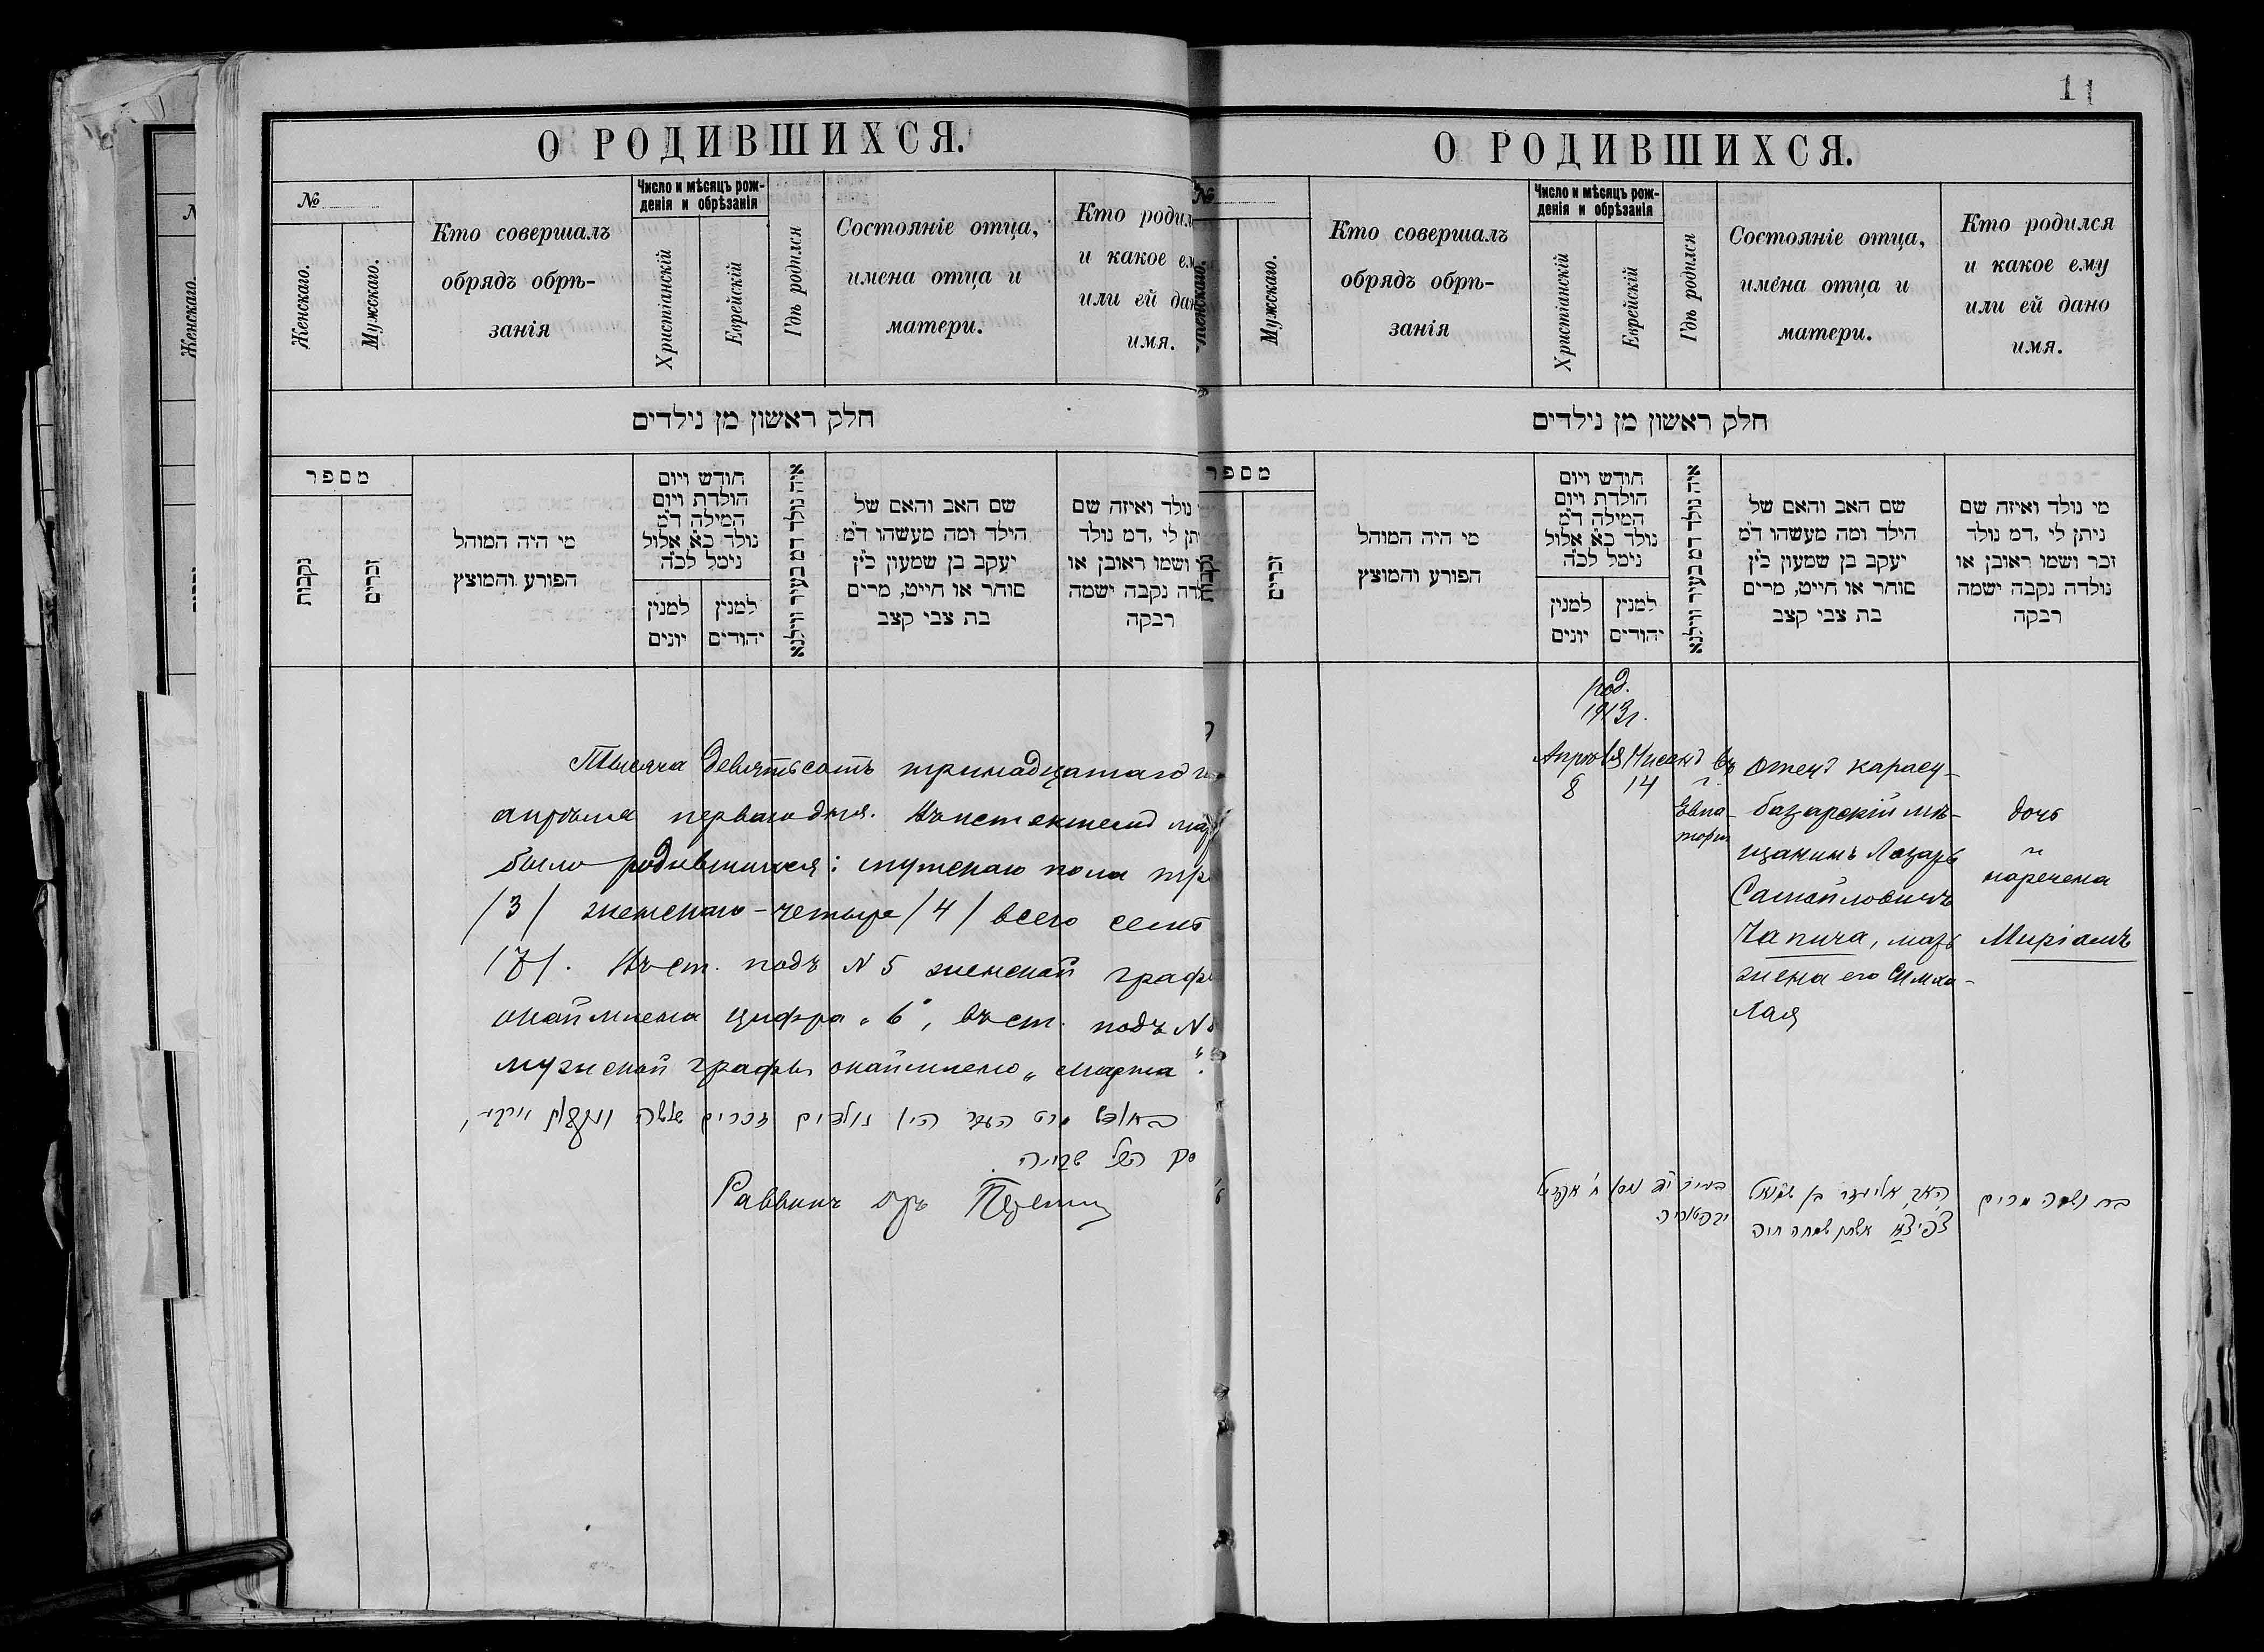 О РОДИВШИХСЯ.
№
Женскаго.
Мужскаго.
Кто совершалъ
обрядъ обрѣ-
занія
Число и мѣсяцъ рож-
денія и обрѣзанія
Христіанскій
Еврейскій
Гдѣ родился
Состояніе отца,
имена отца и
матери.
Кто родил
и какое ем
или ей дан
имя.
חלק ראשון מן נילדים
מספר
נקבות
זכרים
מי היה המוהל
הפורע והמוצץ
חודש ויום
הולדת ויום
המילה ד״מ
נולד כ״א אלול
נימל לכ״ה
למנין
יונים
למנין
יהודים
איה נולד דמ בעיר ווילנא
שם האב והאם של
הילד ומה מעשהו ד״מ
יעקב בן שמעון כ״ץ
סוחר או חייט, מרים
בת צבי קצב
נולד ואיזה שם
תן לי ,דמ נולד
ושמו ראובן או
דה נקבה ישמה
רבקה
Тысяча девятьсотъ тринадцатаго
апрѣля перваго дня. Въ истекшемъ
было родившихся: мужскаго пола
/3/ женскаго - четыре /4/ всего семь
/7/. Въ ст. подъ N 5 женской
окаймлена цифра „6", въ ст. подъ N
мужской графы окаймлено „марта".
נולדים זכרים
Раввинъ
11
О РОДИВШИХСЯ.
№
Женскаго.
Мужскаго.
Кто совершалъ
обрядъ обрѣ-
занія
Число и мѣсяцъ рож-
денія и обрѣзанія
Христіанскій
Еврейскій
Гдѣ родился
Состояніе отца,
имена отца и
матери.
Кто родился
и какое ему
или ей дано
имя.
חלק ראשון מן נילדים
מספר
נקבות
זכרים
מי היה המוהל
הפורע והמוצץ
חודש ויום
הולדת ויום
המילה ד״מ
נולד כ״א אלול
נימל לכ״ה
למנין
יונים
למנין
יהודים
איה נולד דמ בעיר ווילנא
שם האב והאם של
הילד ומה מעשהו ד״מ
יעקב בן שמעון כ״ץ
סוחר או חייט, מרים
בת צבי קצב
מי נולד ואיזה שם
ניתן לי ,דמ נולד
זכר ושמו ראובן או
נולדה נקבה ישמה
רבקה
род.
1913 г.
Апрѣля
8
Нисанъ
14
въ
г.
Евпа-
торіи
Отецъ карасу-
базарскій мѣ-
щанинъ Лазарь
Самойловичъ
Чапича, мать
жена его Симха-
Хая
дочь
и
наречена
Миріамъ
האב אליעזר בן שמואל
צ'פיצ'א אשתו שמחה חיה
בת ושמה מרים